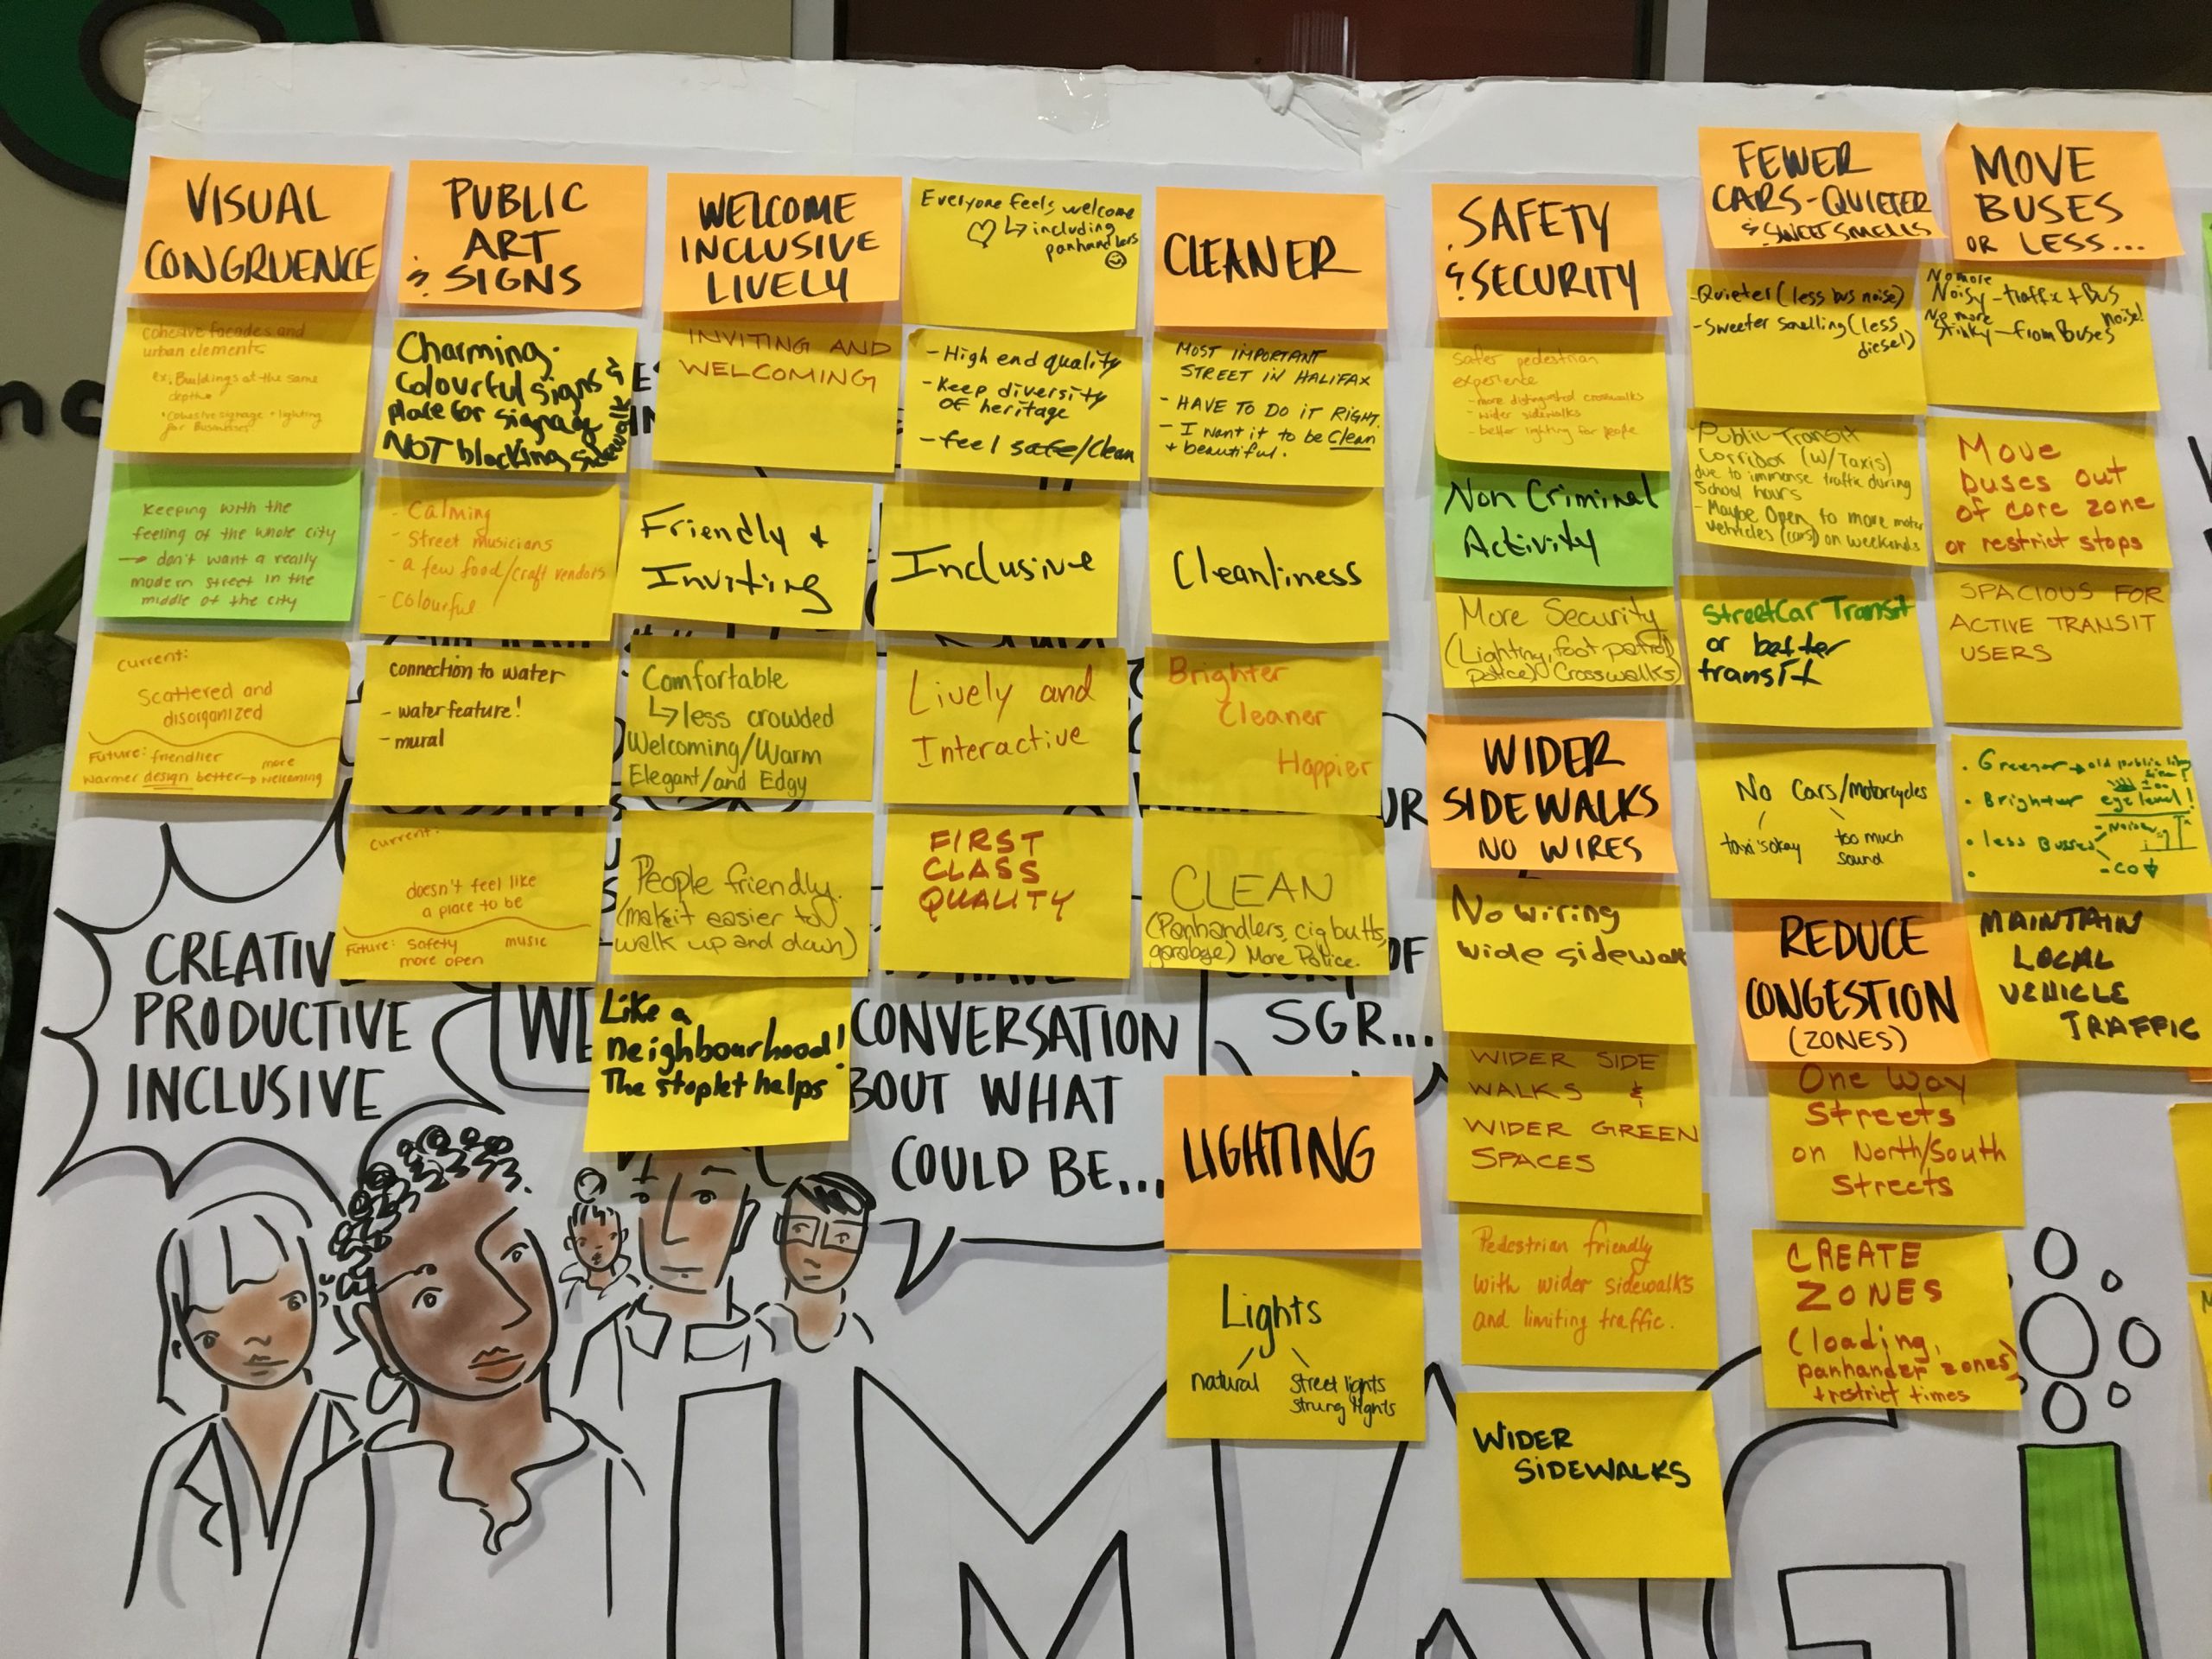 VISUAL
CONGRUENCE
cohesive facades and
urban elements
ex. Buildings at the same
depth
• cohesive signage + lighting
for Businesses.
Keeping with the
feeling of the whole city
→ don't want a really
modern street in the
middle of the city
Current:
Scattered and
disorganized
Future: friendlier
more
warmer design better → welcoming
PUBLIC
ART
& SIGNS
Charming.
Colourful signs &
place for signage
NOT blocking sidewalk
- Calming
- Street musicians
- a few food/craft vendors
- Colourful
connection to water
- water feature!
- mural
Current:
doesn't feel like
a place to be
Future: safety music
more open
WELCOME
INCLUSIVE
LIVELY
INVITING AND
WELCOMING
Friendly +
Inviting
Comfortable
↳ less crowded
Welcoming/Warm
Elegant/and Edgy
People friendly.
(make it easier to
walk up and down)
Like a
neighbourhood!
The stoplet helps
Everyone feels welcome
♡ ↳ including
panhandlers
☺
- High end quality
- Keep diversity
of heritage
- feel safe/clean
Inclusive
Lively and
Interactive
FIRST
CLASS
QUALITY
CLEANER
MOST IMPORTANT
STREET IN HALIFAX
- HAVE TO DO IT RIGHT.
- I want it to be Clean
+ beautiful.
Cleanliness
Brighter
Cleaner
Happier
CLEAN
(Panhandlers, cig butts,
garabge) More Police.
LIGHTING
Lights
natural
Street lights
Strung lights
SAFETY
& SECURITY
Safer pedestrian
experience
- more distinguished crosswalks
- wider sidewalks
- better lighting for people
Non Criminal
Activity
More Security
(Lighting, foot patrol
police) Crosswalks)
WIDER
SIDEWALKS
NO WIRES
No wiring
wide sidewalk
WIDER SIDE
WALKS &
WIDER GREEN
SPACES
Pedestrian friendly
with wider sidewalks
and limiting traffic.
WIDER
SIDEWALKS
FEWER
CARS-QUIETER
& SWEET SMELLS
- Quieter (less bus noise)
- Sweeter smelling (less
diesel)
Public Transit
Corridor (w/Taxis)
due to immense traffic during
School hours
- Maybe Open to more motor
vehicles (cars) on weekends
StreetCar Transit
or better
transit
No Cars/motorcycles
taxi's okay
too much
sound
REDUCE
CONGESTION
(ZONES)
One Way
Streets
on North/South
Streets
CREATE
ZONES
(loading,
panhander zones)
+ restrict times
MOVE
BUSES
OR LESS...
No more
Noisy - traffic + Bus
noise!
No more
Stinky - from Buses
Move
buses out
of core zone
or restrict stops
SPACIOUS FOR
ACTIVE TRANSIT
USERS
• Greener → old public lib
• Brighter eye level!
• less Busses
- Noise
- CO
MAINTAIN
LOCAL
VEHICLE
TRAFFIC
CREATIV
PRODUCTIVE
INCLUSIVE
WE
CONVERSATION
BOUT WHAT
COULD BE...
UR
OF
SGR...
IMAGI